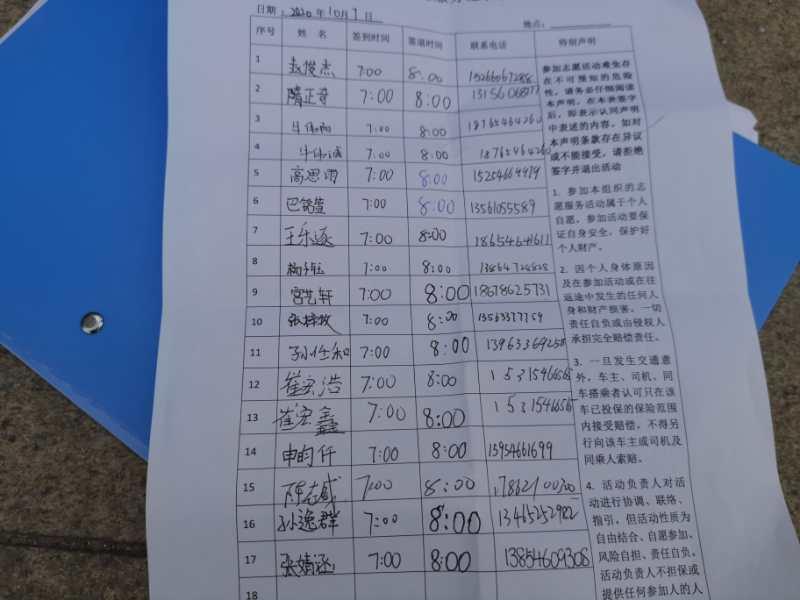 日期：2020年10月7日
地点：
序号 姓 名 签到时间 签退时间 联系电话 特别声明
1 7:00 8:00 15266067288
2 隋正奇 7:00 8:00
3 7:00 8:00 18765464260
4 7:00 8:00 18765464260
5 高思雨 7:00 8:00 15254664479
6 巴铭萱 7:00 8:00 13561055589
7 王乐逐 7:00 8:00 18654641611
8 7:00 8:00 13864728828
9 宫艺轩 7:00 8:00 18678625731
10 7:00 8:00 13563377759
11 孙仕和 7:00 8:00 13963369258
12 崔宏浩 7:00 8:00
13 崔宏鑫 7:00 8:00
14 申昀仟 7:00 8:00 15954661699
15 7:00 8:00
16 孙逸群 7:00 8:00 13465252982
17 张婧涵 7:00 8:00 13854609308
18
参加志愿活动难免存
在不可预知的危险
性，请务必仔细阅读
本声明，在本表签字
后，即表示认同声明
中表述的内容。如对
本声明条款存在异议
或不能接受，请拒绝
签字并退出活动
1. 参加本组织的志
愿服务活动属于个人
自愿，参加活动要保
证自身安全，保护好
个人财产。
2. 因个人身体原因
及在参加活动或在往
返途中发生的任何人
身和财产损害，一切
责任自负或由侵权人
承担完全赔偿责任。
3. 一旦发生交通意
外，车主、司机、同
车搭乘者认可只在该
车已投保的保险范围
内接受赔偿，不得另
行向该车主或司机及
同乘人索赔。
4. 活动负责人对活
动进行协调、联络、
指引，但活动性质为
自由结合、自愿参加、
风险自担、责任自负。
活动负责人不担保或
提供任何参加人的人